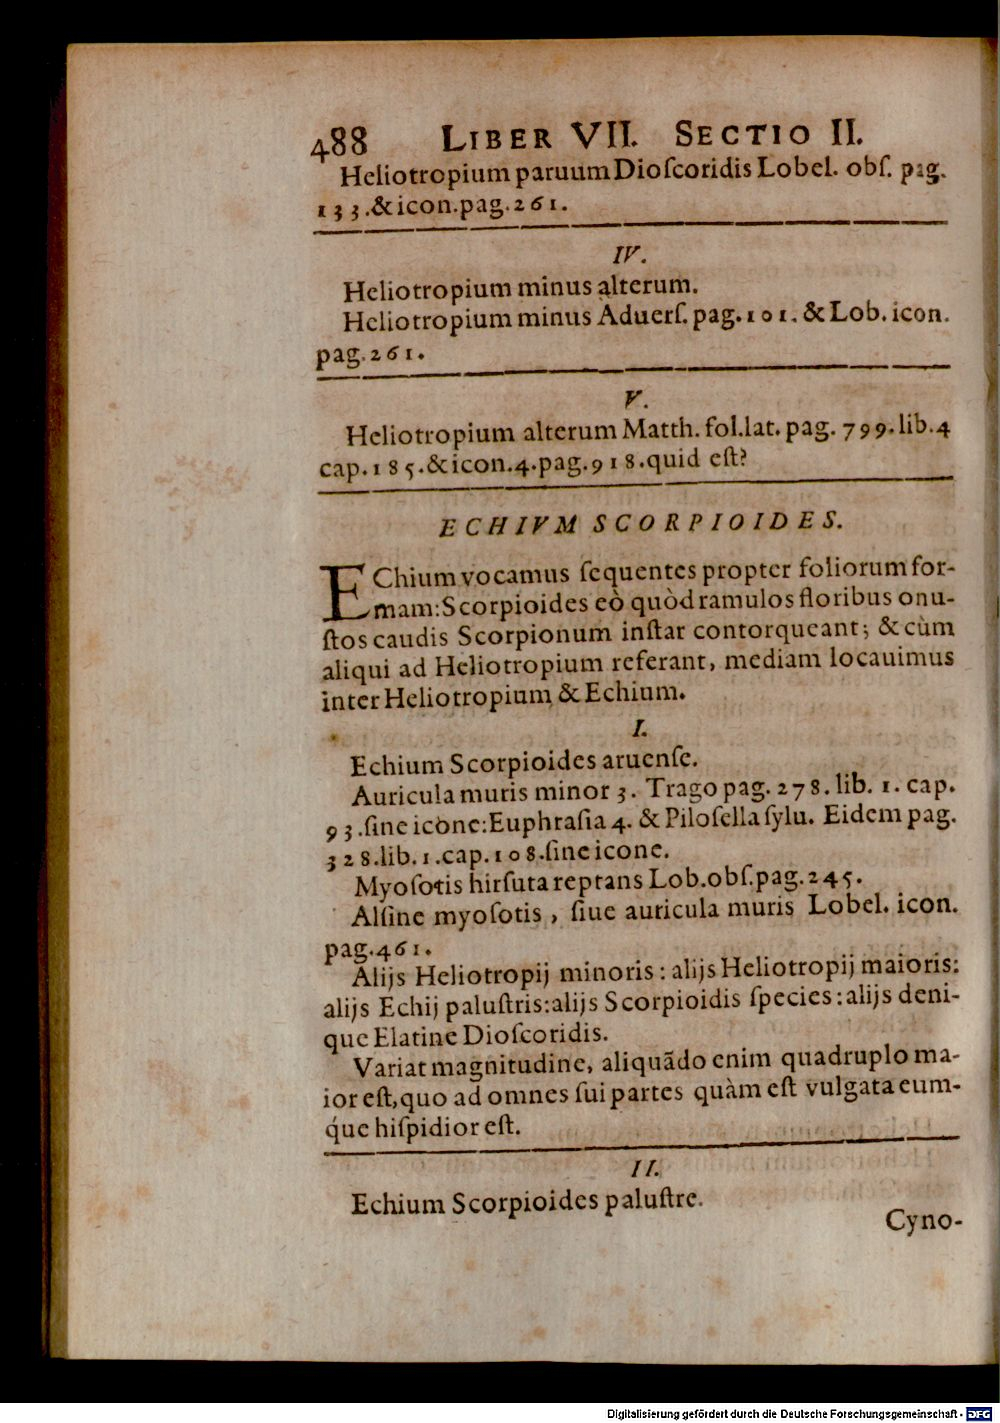 488 LIBER VII. SECTIO II.
Heliotropium paruum Dioſcoridis Lobel. obſ. pag.
133.& icon.pag.261.
IV.
Heliotropium minus alterum.
Heliotropium minus Aduerſ. pag.101. & Lob. icon.
pag.261.
V.
Heliotropium alterum Matth. fol.lat. pag. 799.lib.4
cap.185.& icon.4.pag.918.quid eſt?
ECHIVM SCORPIOIDES.
EChium vocamus ſequentes propter foliorum for-
mam:Scorpioides eò quòd ramulos floribus onu-
ſtos caudis Scorpionum inſtar contorqueant; & cùm
aliqui ad Heliotropium referant, mediam locauimus
inter Heliotropium & Echium.
I.
Echium Scorpioides aruenſe.
Auricula muris minor 3. Trago pag. 278. lib. 1. cap.
93.ſine icone:Euphraſia 4. & Piloſella ſylu. Eidem pag.
328.lib.1.cap.108.ſine icone.
Myoſotis hirſuta reptans Lob.obſ.pag.245.
Alſine myoſotis, ſiue auricula muris Lobel. icon.
pag.461.
Alijs Heliotropij minoris: alijs Heliotropij maioris:
alijs Echij paluſtris:alijs Scorpioidis ſpecies:alijs deni-
que Elatine Dioſcoridis.
Variat magnitudine, aliquãdo enim quadruplo ma-
ior eſt,quo ad omnes ſui partes quàm eſt vulgata eum-
q́ue hiſpidior eſt.
II.
Echium Scorpioides paluſtre.
Cyno-
Digitalisierung gefördert durch die Deutsche Forschungsgemeinschaft - DFG